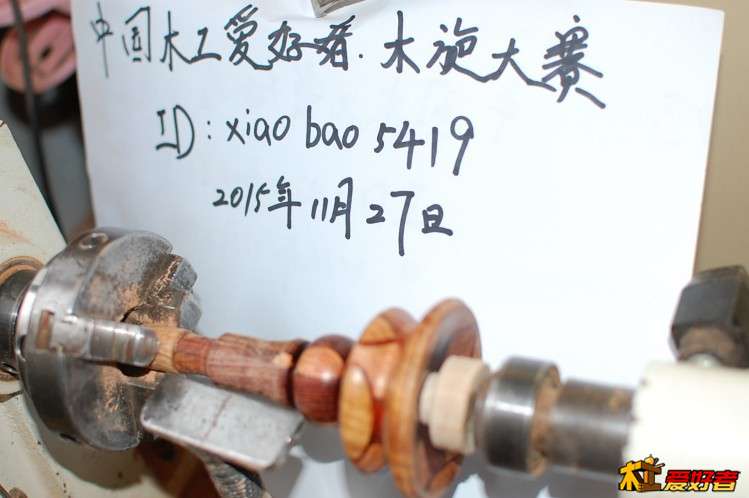 中国木工爱好者.木旋大赛
ID: xiao bao 5419
2015年11月27日
木工爱好者